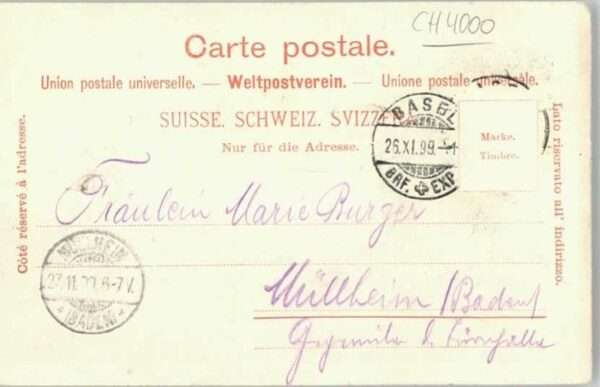 CH4000
Carte postale.
Union postale universelle. — Weltpostverein. — Unione postale universale.
SUISSE. SCHWEIZ. SVIZZE
Nur für die Adresse.
Côté réservé à l'adresse.
Lato riservato all' indirizzo.
Marke.
Timbre.
BASEL
26.XI.99.
BRF. EXP
Fräulein Marie Burger
Müllheim/Baden
Gegenüber d. Turnhalle
MÜLLHEIM
27.11.99.6-7V.
(BADEN)